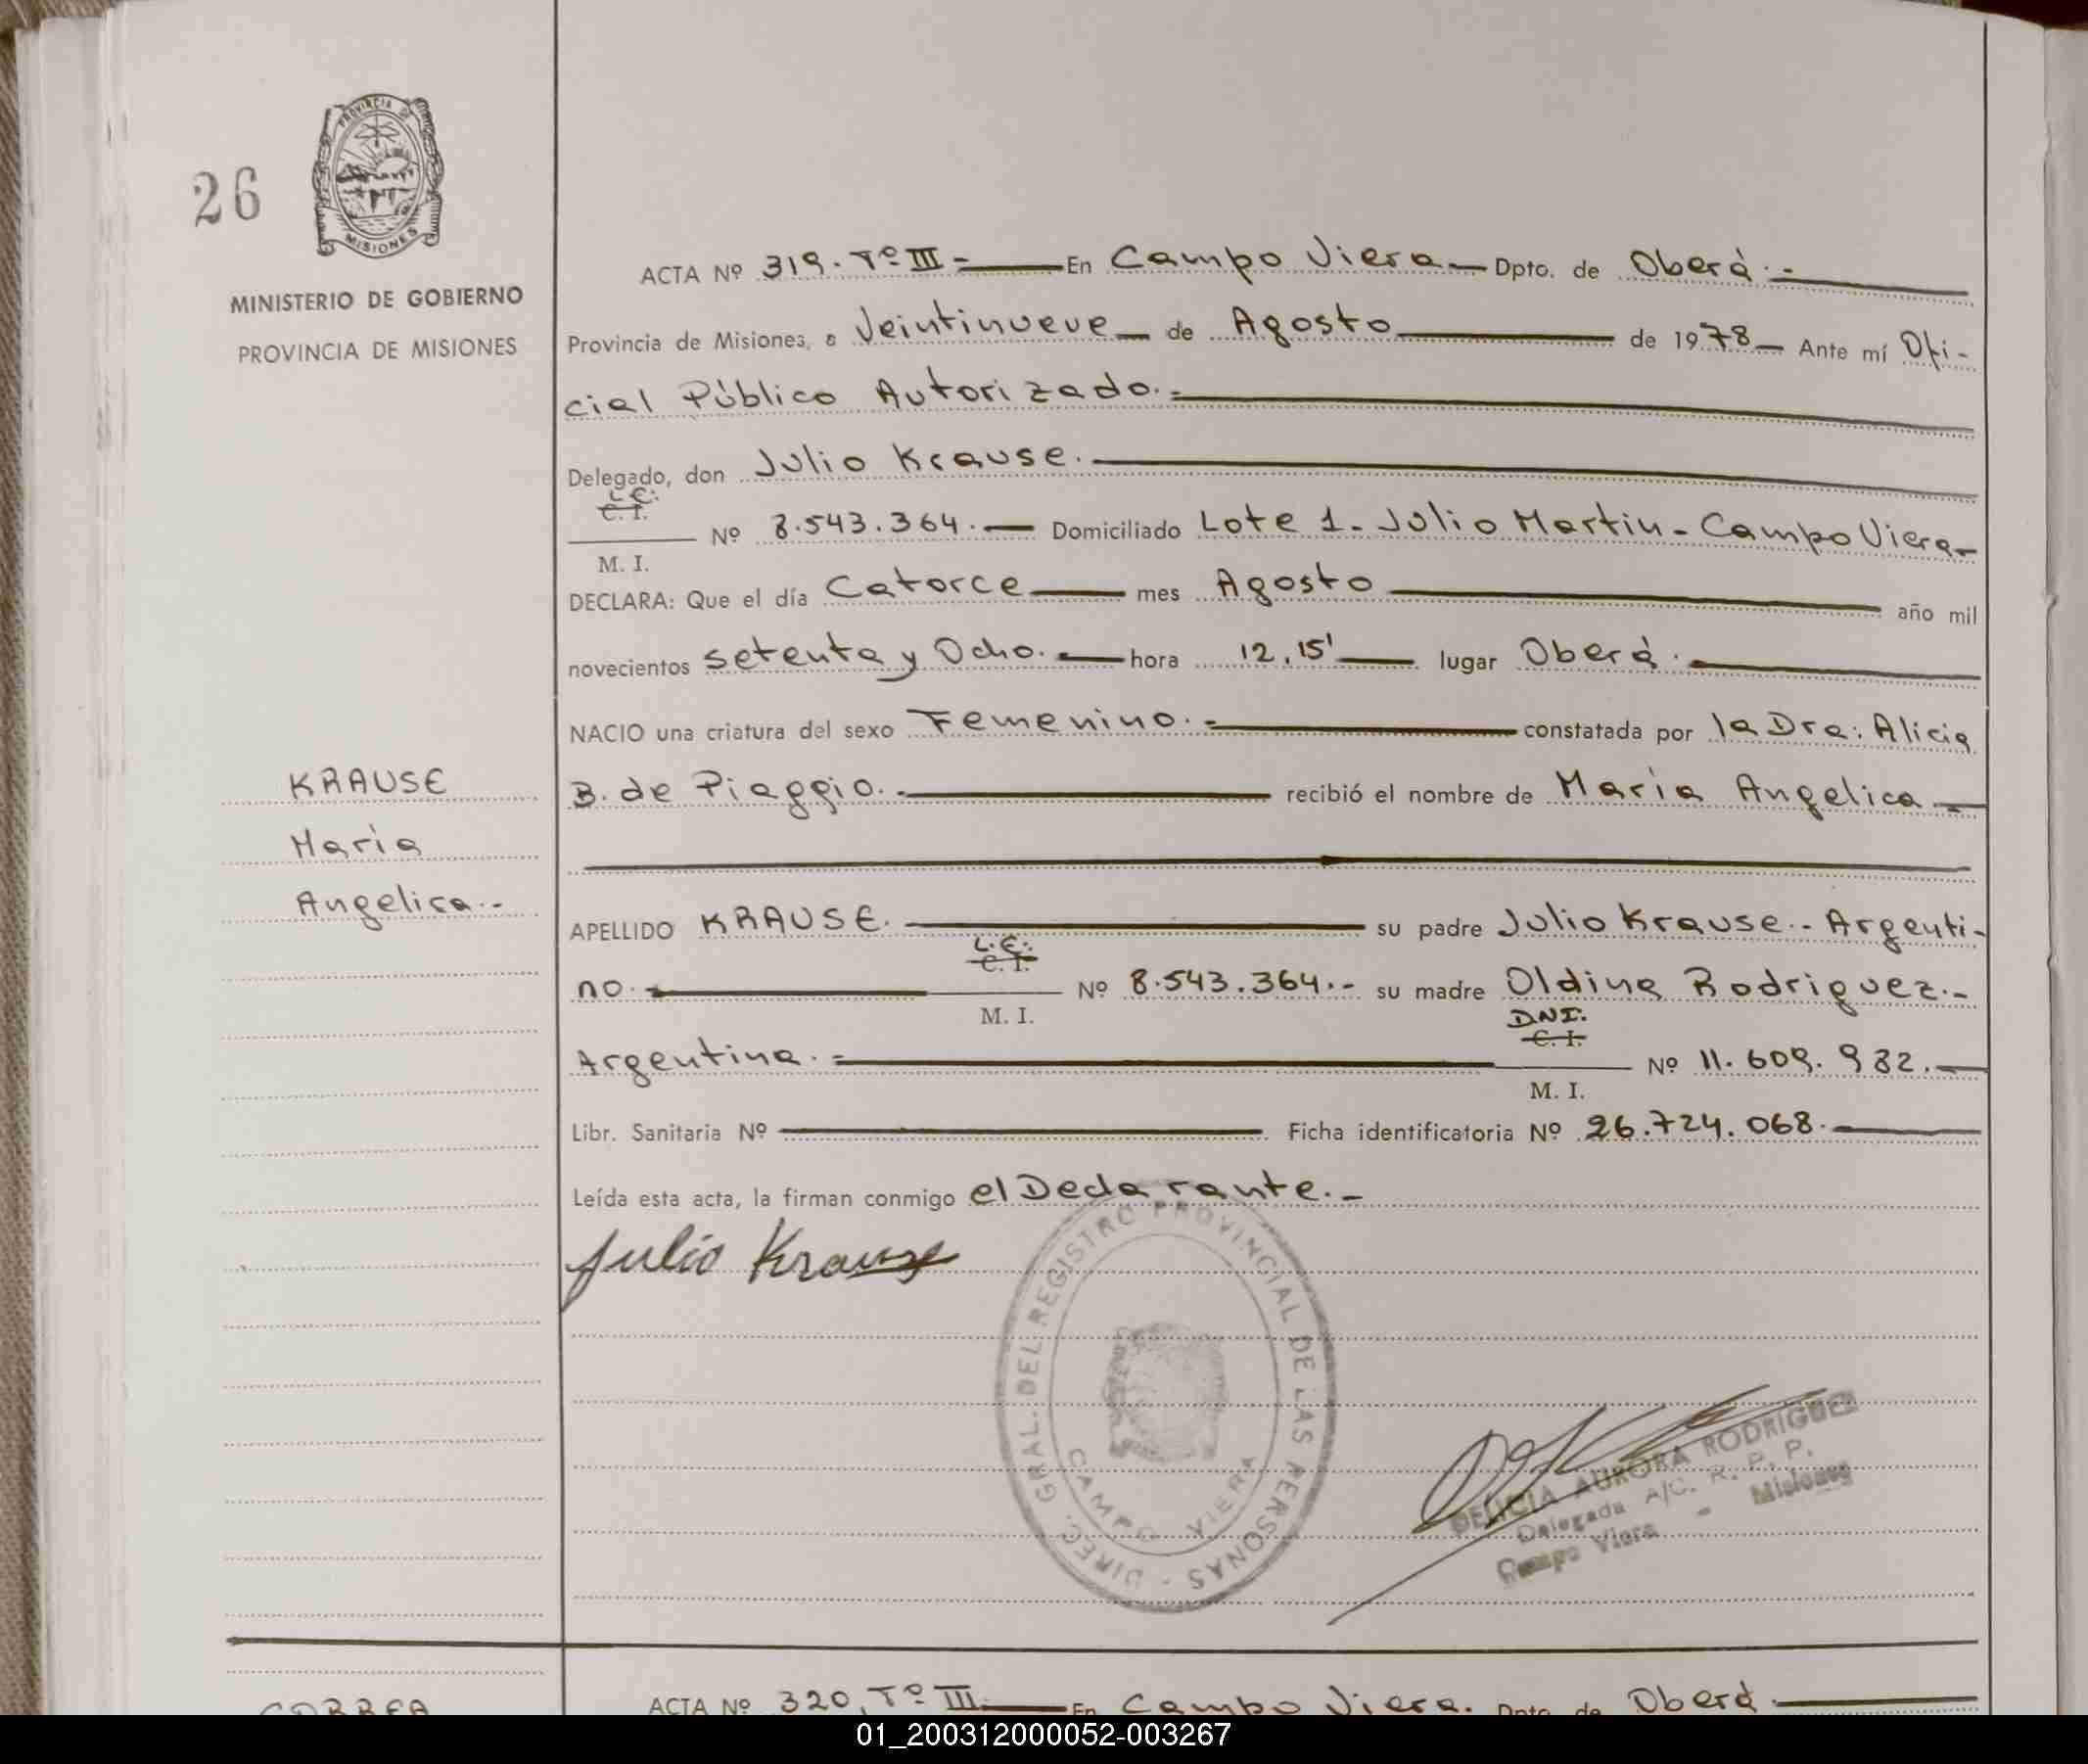 26
PROVINCIA DE
MISIONES
MINISTERIO DE GOBIERNO
PROVINCIA DE MISIONES
ACTA Nº 319. Tº III - En Campo Viera - Dpto. de Oberá.-
Provincia de Misiones, a Veintinueve de Agosto de 1978 Ante mí Ofi-
cial Público Autorizado.-
Delegado, don Julio Krause.
L.E.
C. I.
Nº 8.543.364. Domiciliado Lote 1. Julio Martin - Campo Viera-
M. I.
DECLARA: Que el día Catorce mes Agosto año mil
novecientos setenta y Ocho. hora 12,15' lugar Oberá.
NACIO una criatura del sexo Femenino.- constatada por la Dra: Alicia
KRAUSE
B. de Piaggio.- recibió el nombre de María Angelica.-
María
Angelica.-
APELLIDO KRAUSE. su padre Julio Krause.- Argenti-
L.E.
C. I.
no.- Nº 8.543.364.- su madre Oldina Rodriguez.-
M. I.
DNI.
C. I.
Argentina.- Nº 11.609.982.
M. I.
Libr. Sanitaria Nº Ficha identificatoria Nº 26.724.068.
Leída esta acta, la firman conmigo el Declarante.-
Julio Krause
DIREC. GRAL. DEL REGISTRO PROVINCIAL DE LAS PERSONAS -
CAMPO VIERA
DELICIA AURORA RODRIGUEZ
Delegada A/C. R. P. P.
Campo Viera - Misiones
CORREA
ACTA Nº 320, Tº III. En Campo Viera. Dpto. de Oberá.
01_200312000052-003267